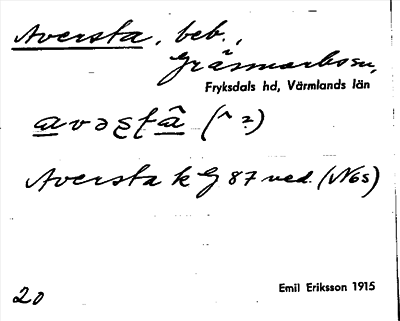 Aversta, beb.,
i
Gräsmarks sn,
Fryksdals hd, Värmlands län
Aversta k G 87 ved. (N6s)
20
Emil Eriksson 1915